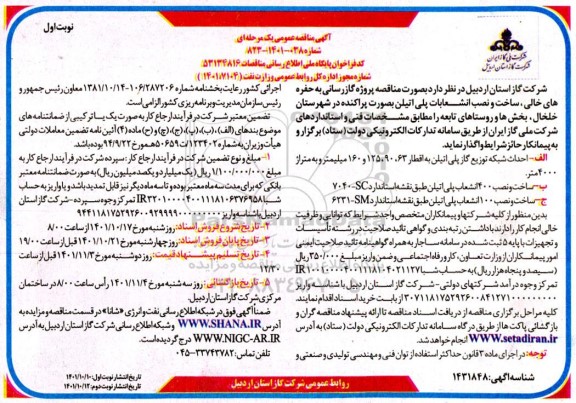 آگهی مناقصه عمومی یک مرحله ای
شماره ۰۳۸-۱۴۰۱-۸۲۳
کد فراخوان پایگاه ملی اطلاع رسانی مناقصات ۵۳۱۳۴۸۱۶
شماره مجوز اداره کل روابط عمومی وزارت نفت (۱۴۰۱/۷۱۰۴)
نوبت اول
شرکت ملی گاز ایران
شرکت گاز استان اردبیل
شرکت گاز استان اردبیل در نظر دارد بصورت مناقصه پروژه گازرسانی به حفره
های خالی، ساخت و نصب انشعابات پلی اتیلن بصورت پراکنده در شهرستان
خلخال، بخش ها و روستاهای تابعه را مطابق مشخصات فنی و استانداردهای
شرکت ملی گاز ایران از طریق سامانه تدارکات الکترونیکی دولت (ستاد) برگزار و
به پیمانکار حائز شرایط واگذار نماید.
الف- احداث شبکه توزیع گاز پلی اتیلن به اقطار ۶۳، ۹۰، ۱۲۵ و ۱۶۰ میلیمتر و به متراژ
۴۰۰۰ متر.
ب- ساخت و نصب ۴۰۰ انشعاب پلی اتیلن طبق نقشه استاندارد SC-۷۰۴۰
ج- ساخت و نصب ۱۰۰ انشعاب پلی اتیلن طبق نقشه استاندارد SM-۶۲۳۱
بدین منظور از کلیه شرکتها و پیمانکاران متخصص واجد شرایط که توانایی و ظرفیت
خالی انجام کار را دارند با داشتن رتبه بندی و گواهی تائید صلاحیت در رشته تأسیسات
و تجهیزات با پایه ۵ ثبت شده در سامانه ساجار به همراه گواهینامه تائید صلاحیت ایمنی
امور پیمانکاران از وزارت تعاون، کار و رفاه اجتماعی و ضمن واریز مبلغ ۳۵۰.۰۰۰ ریال
(سیصد و پنجاه هزار ریال) به حساب IR۱۰۰۱۰۰۰۰۴۰۰۱۱۱۸۰۴۰۲۱۱۲۷
تمرکز وجوه درآمد شرکتهای دولتی- شرکت گاز استان اردبیل با شناسه واریز
از بابت خرید اسناد اقدام نمایند.
کلیه مراحل برگزاری مناقصه از دریافت اسناد مناقصه تا ارائه پیشنهاد مناقصه گران و
بازگشائی پاکت ها از طریق درگاه سامانه تدارکات الکترونیکی دولت (ستاد) به آدرس
www.setadiran.ir انجام خواهد شد.
توجه: در اجرای ماده ۳ قانون حداکثر استفاده از توان فنی و مهندسی تولیدی و صنعتی و
شناسه آگهی: ۱۴۳۱۸۴۸
اجرائی کشور رعایت بخشنامه شماره ۱۰۶/۲۸۷۲۰۶-۱۳۸۱/۱۰/۱۴ معاون رئیس جمهور و
رئیس سازمان مدیریت و برنامه ریزی کشور الزامی است.
تضمین معتبر شرکت در فرآیند ارجاع کار به صورت یک یا ترکیبی از ضمانتنامه های
موضوع بندهای (الف)، (ب)، (پ)، (ج)، (چ) و (ح) ماده (۴) آئین نامه تضمین معاملات دولتی
هیأت وزیران به شماره ۱۲۳۴۰۲/ت۵۰۶۵۹هـ مورخ ۹۴/۹/۲۲ باشد.
۱- مبلغ و نوع تضمین شرکت در فرآیند ارجاع کار: سپرده شرکت در فرآیند ارجاع کار به
مبلغ ۱/۱۰۰/۰۰۰/۰۰۰ ریال (یک میلیارد و یکصد میلیون ریال) به صورت ضمانتنامه معتبر
بانکی که برای مدت سه ماه معتبر بوده و تا سه ماه دیگر نیز قابل تمدید باشد و یا واریز به حساب
شبا تمرکز وجوه سپرده- شرکت گاز استان
اردبیل با شناسه واریز
۲- تاریخ شروع فروش اسناد: روز شنبه مورخ ۱۴۰۱/۱۰/۱۷ از ساعت ۸/۰۰
۳- تاریخ پایان فروش اسناد: روز چهارشنبه مورخ ۱۴۰۱/۱۰/۲۱ قبل از ساعت ۱۹/۰۰
۴- تاریخ تسلیم پیشنهاد قیمت: روز دوشنبه مورخ ۱۴۰۱/۱۱/۳ قبل از ساعت
۷/۳۰
۵- تاریخ بازگشائی: روز سه شنبه مورخ ۱۴۰۱/۱۱/۴ رأس ساعت ۸/۰۰ در ساختمان
مرکزی شرکت گاز استان اردبیل.
ضمناً آگهی فوق در شبکه اطلاع رسانی نفت و انرژی «شانا» در قسمت مناقصه و مزایده به
آدرس WWW.SHANA.IR و شبکه اطلاع رسانی شرکت گاز استان اردبیل به آدرس
WWW.NIGC-AR.IR درج گردیده است.
تلفن تماس: ۳۳۷۴۳۷۸۲-۰۴۵
تاریخ انتشار نوبت اول: ۱۴۰۱/۱۰/۱۰
تاریخ انتشار نوبت دوم: ۱۴۰۱/۱۰/۱۲
روابط عمومی شرکت گاز استان اردبیل